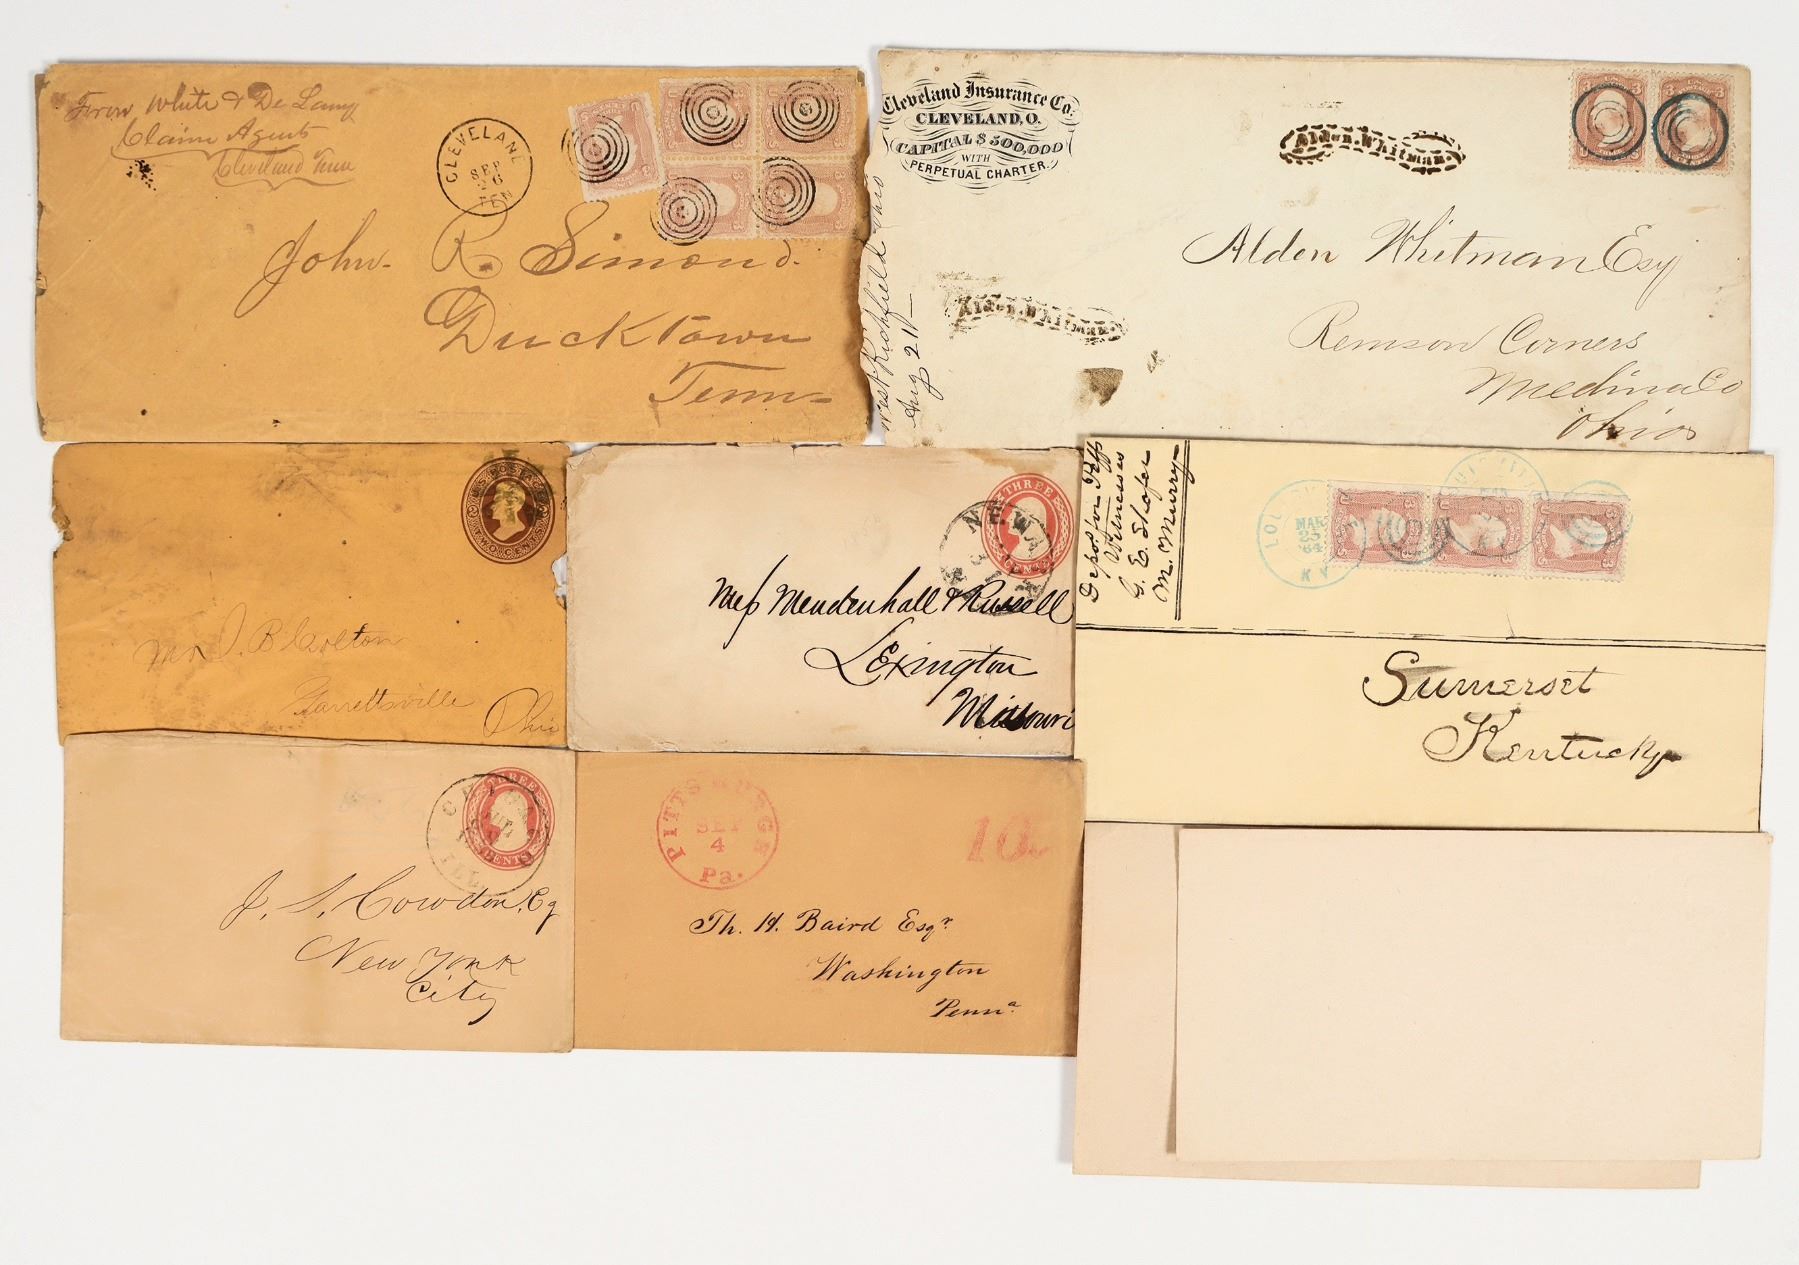 From White & De Lany
Claim Agents
Cleveland Tenn
CLEVELAND
SEP
26
TEN
John R Simond.
Ducktown
Tenn
Cleveland Insurance Co.
CLEVELAND, O.
CAPITAL $500,000
WITH
PERPETUAL CHARTER.
West Richfield Ohio
Aug 21
Alden.Whitman.
Alden.Whitman.
Alden Whitman Esq
Remson Corners
Medina Co
Ohio
U.S. POSTAGE
TWO CENTS
Mr J. B Carlton
Garrettsville
Ohio
THREE
CENTS
Mess Mendenhall & Russell
Lexington
Missouri
Depos for Plff
Witnesses
G. E. Elofer
M. Murry
MAR
23
'64
KY
Sumerset
Kentucky
THREE
CENTS
ILL
J. S. Cowdon, Eq
New York
City
PITTSBURGH
SEP
4
Pa.
10
Th. H. Baird Esqr.
Washington
Penna.